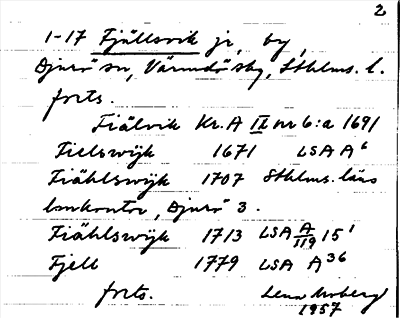 2
1-17 Fjällsvik jr, by,
Djurö sn, Värmdö sky, Sthlms. l.
forts.
Fiälvik Kr. A IX nr 6:a 1691
Fielswijk 1671 LSA A⁶
Fiählswijk 1707 Sthlms. läns
lankontor, Djurö 3.
Fiählswijk 1713 LSA A/119 15¹
Fjell 1779 LSA A³⁶
forts. Lena Moberg
1957